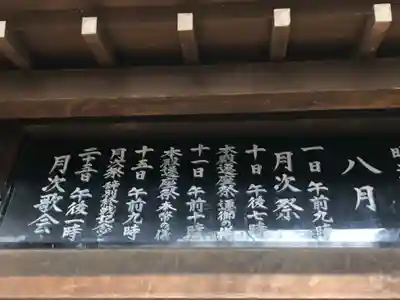 八月
一日 午前九時
月次祭
十日 午後七時
本殿遷座祭 遷御の儀
十一日 午前十時
本殿遷座祭 奉幣の儀
十五日 午前九時
月次祭
二十五日 午後一時
月次歌会